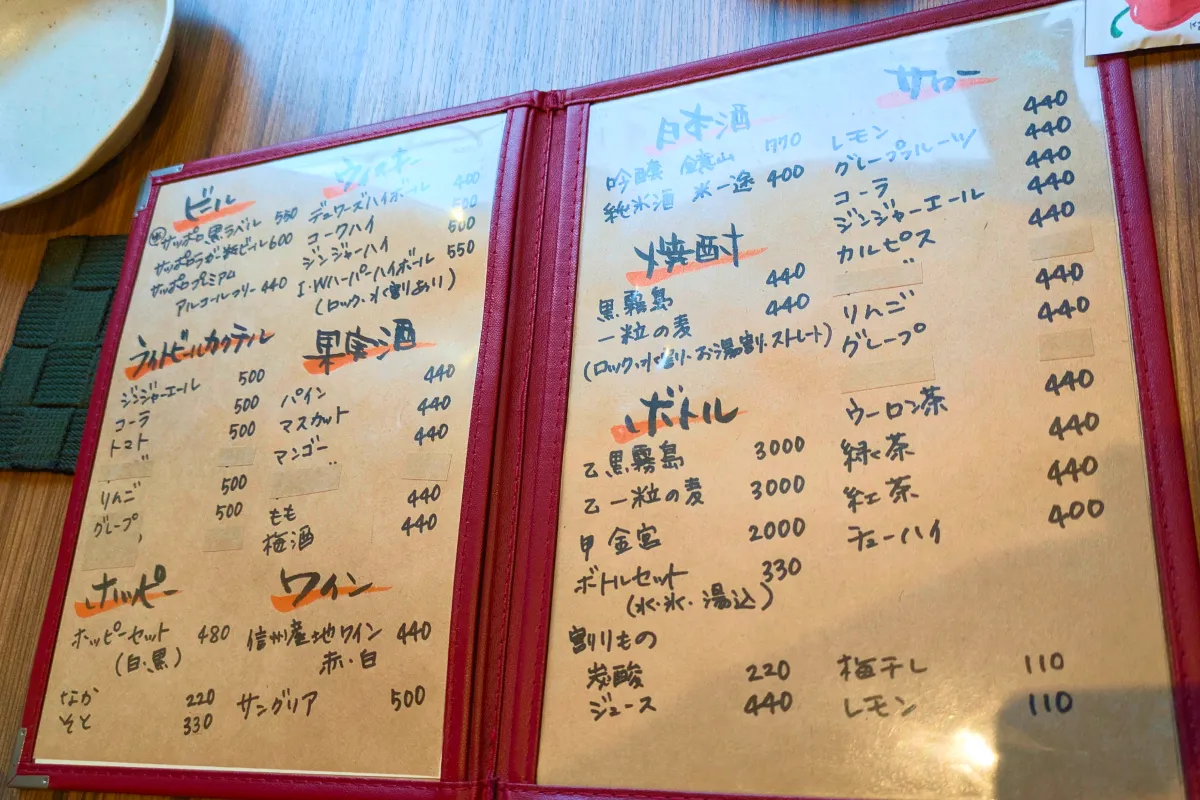 ビール
㊥サッポロ黒ラベル 550
サッポロラガー瓶ビール 600
サッポロプレミアム
アルコールフリー 440
ウィスキー
デュワーズハイボール 400
コークハイ 500
ジンジャーハイ 500
I.Wハーパーハイボール 550
(ロック、水割りあり)
ライトビールカクテル
ジンジャーエール 500
コーラ 500
トマト 500
りんご 500
グレープ 500
果実酒
パイン 440
マスカット 440
マンゴー 440
もも 440
梅酒 440
ホッピー
ホッピーセット 480
(白、黒)
なか 220
そと 330
ワイン
信州産地ワイン 440
赤・白
サングリア 500
日本酒
吟醸 鏡山 770
純米酒 米一途 400
焼酎
黒霧島 440
一粒の麦 440
(ロック、水割り・お湯割・ストレート)
ボトル
乙 黒霧島 3000
乙 一粒の麦 3000
甲 金宮 2000
ボトルセット 330
(水・氷・湯込)
割りもの
炭酸 220
ジュース 440
梅干し 110
レモン 110
サワー
レモン 440
グレープフルーツ 440
コーラ 440
ジンジャーエール 440
カルピス 440
りんご 440
グレープ 440
ウーロン茶 440
緑茶 440
紅茶 440
チューハイ 400